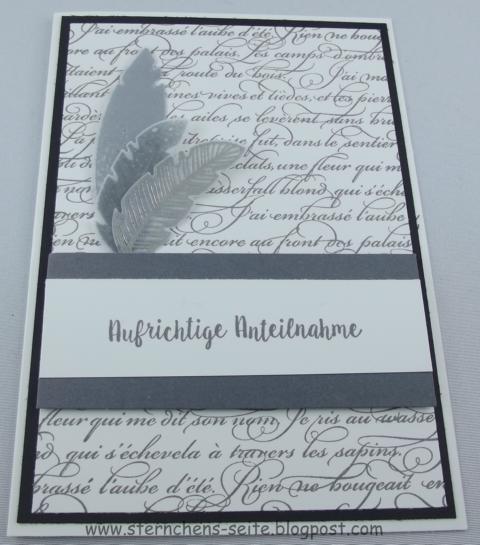 J'ai embrassé l'aube d'été. Rien ne bouge
core au front des palais. Les camps d'ombre
taient la route du bois. J'ai ma
illant nes vives et tièdes, et les pierre
ardè ailes se levèrent sans brui
pr treprise fut, dans le sentier
clats, une fleur qui m
asserfall blond qui s'éche
travers J'ai embrassé l'aube
ut encore au front des palais
Aufrichtige Anteilnahme
fleur qui me dit son nom. Je ris au wasse
d, qui s'échevela à travers les sapins.
brassé l'aube d'été. Rien ne bougeait en
www.sternchens-seite.blogspot.com